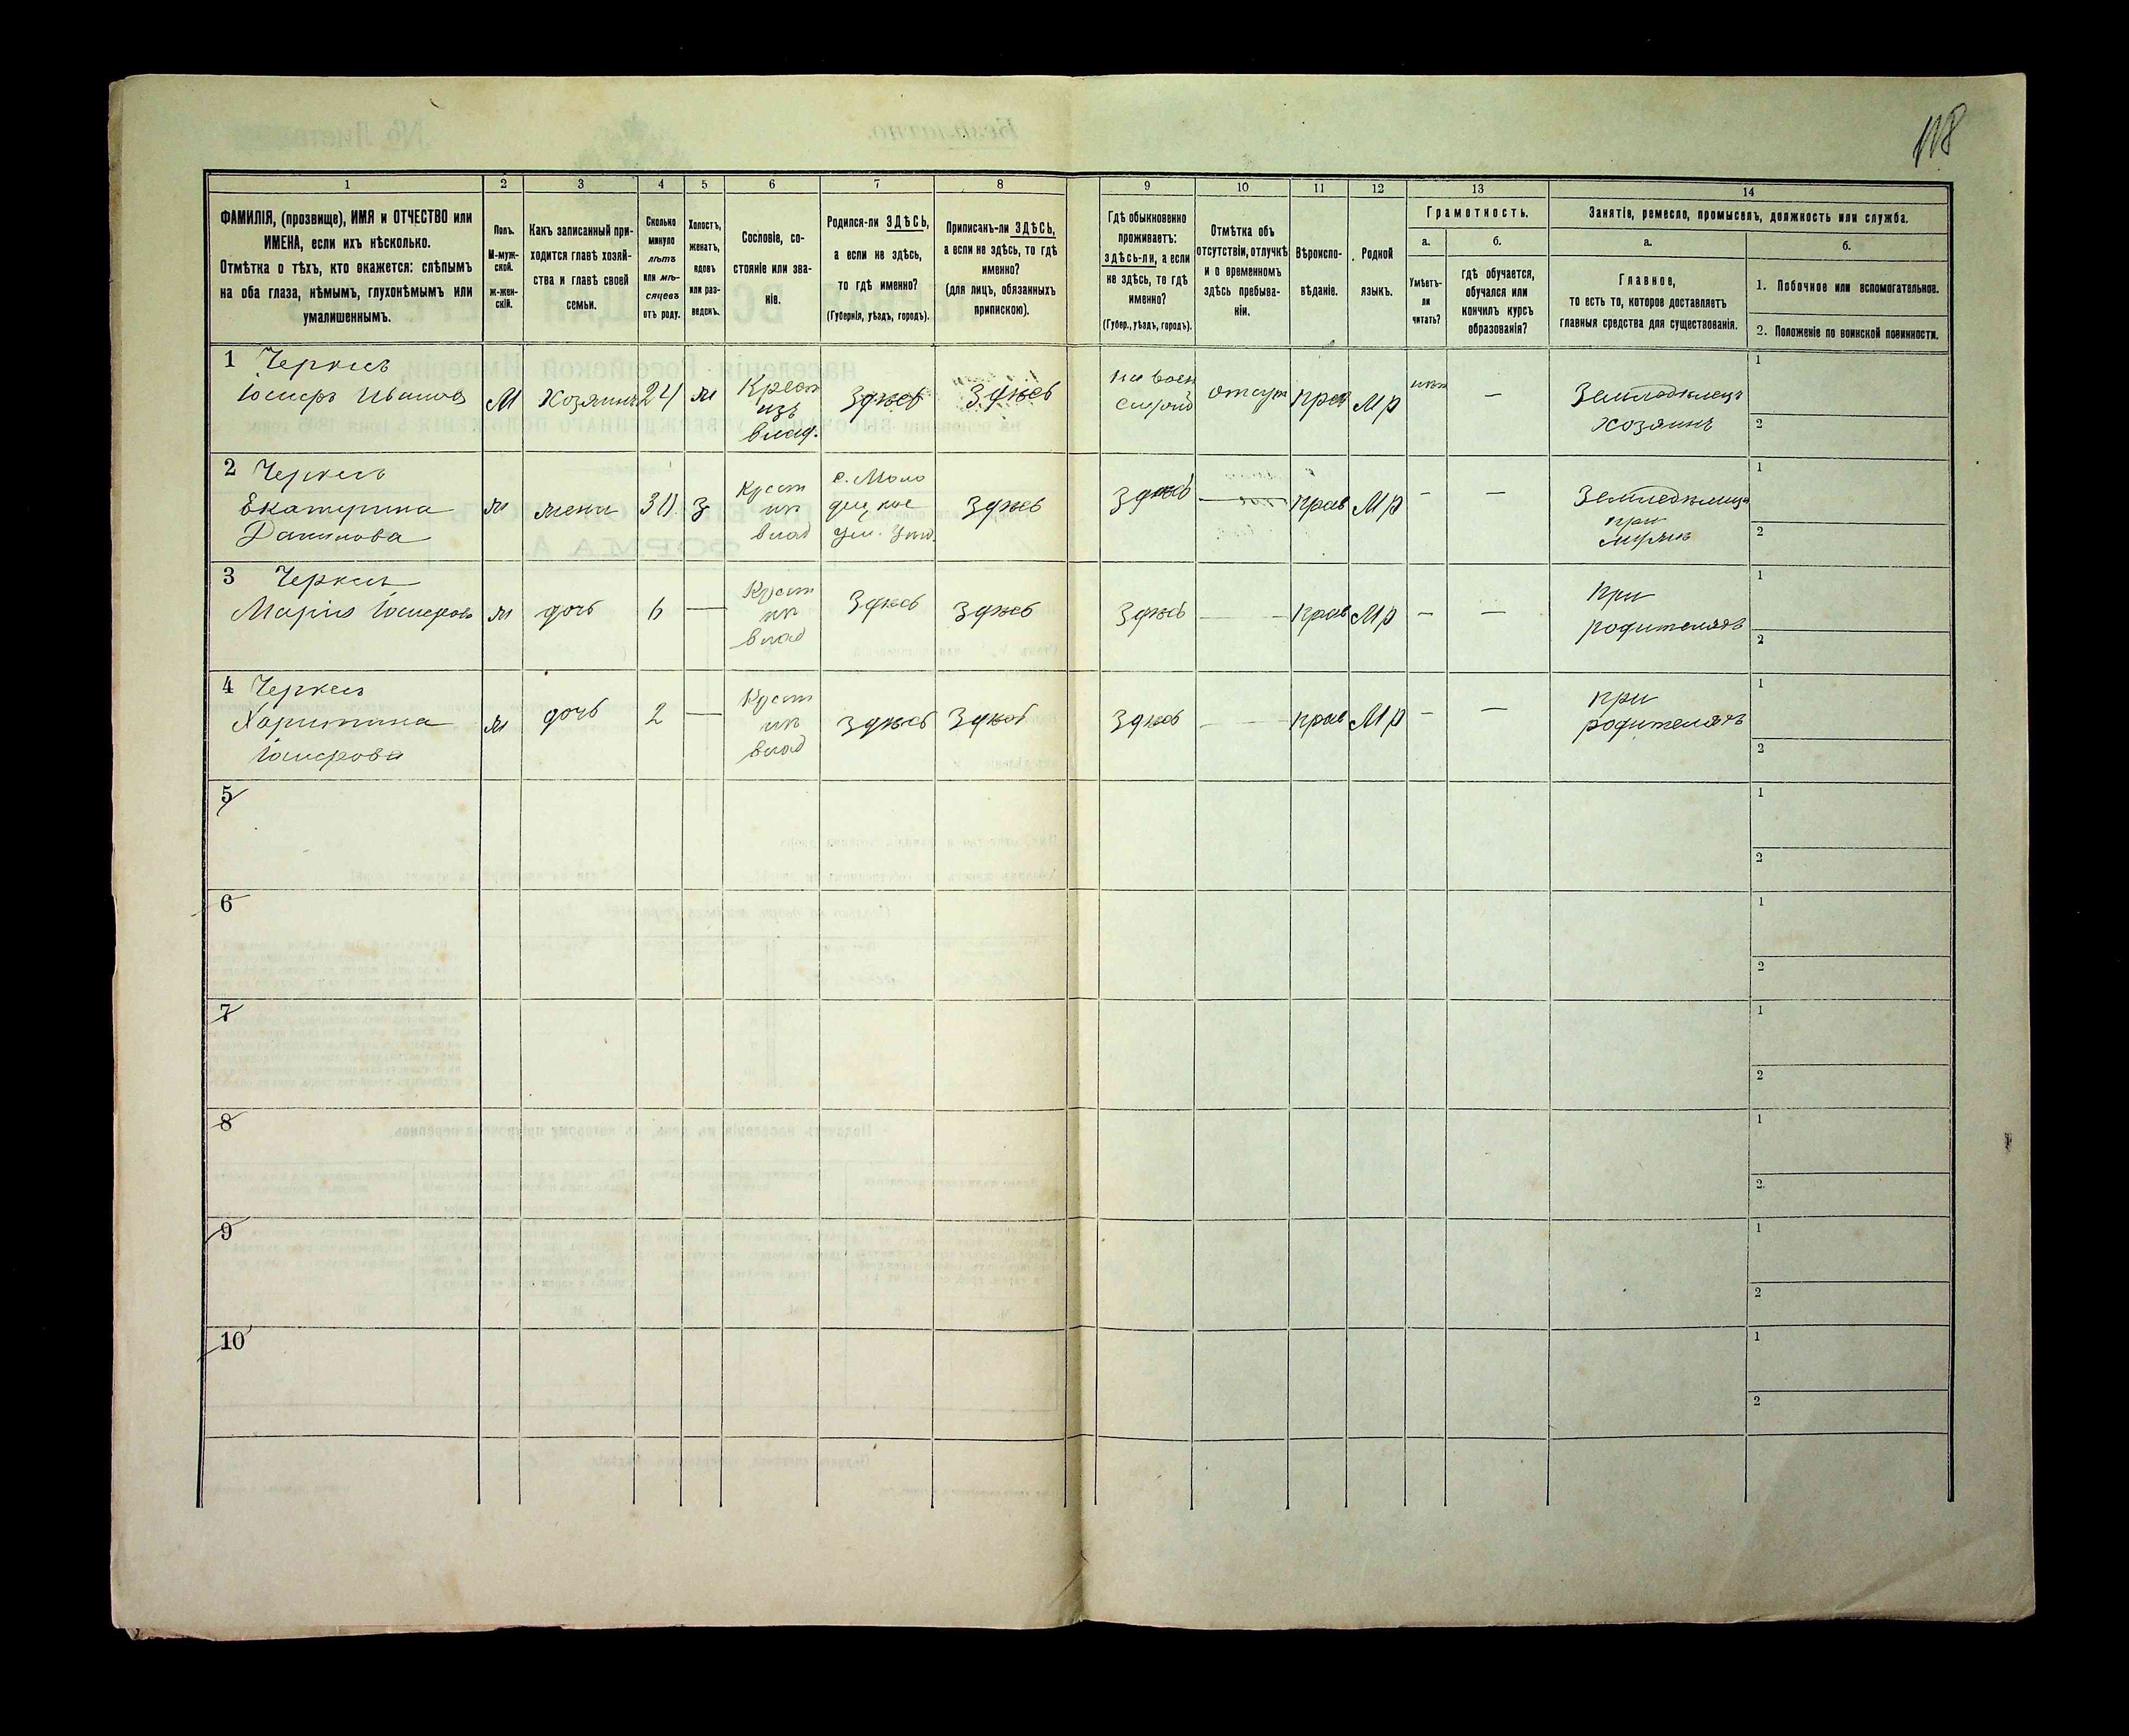 118
1 2 3 4 5 6 7 8 9 10 11 12 13 14
ФАМИЛІЯ, (прозвище), ИМЯ и ОТЧЕСТВО или
ИМЕНА, если ихъ нѣсколько.
Отмѣтка о тѣхъ, кто окажется: слѣпымъ
на оба глаза, нѣмымъ, глухонѣмымъ или
умалишеннымъ.
Полъ.
М-муж-
ской.
Ж-жен-
скій.
Какъ записанный при-
ходится главѣ хозяй-
ства и главѣ своей
семьи.
Сколько
минуло
лѣтъ
или мѣ-
сяцевъ
отъ роду.
Холостъ,
женатъ,
вдовъ
или раз-
веденъ.
Сословіе, со-
стояніе или зва-
ніе.
Родился-ли ЗДѢСЬ,
а если не здѣсь,
то гдѣ именно?
(Губернія, уѣздъ, городъ).
Приписанъ-ли ЗДѢСЬ,
а если не здѣсь, то гдѣ
именно?
(для лицъ, обязанныхъ
припискою).
Гдѣ обыкновенно
проживаетъ:
здѣсь-ли, а если
не здѣсь, то гдѣ
именно?
(Губер., уѣздъ, городъ).
Отмѣтка объ
отсутствіи, отлучкѣ
и о временномъ
здѣсь пребыва-
ніи.
Вѣроиспо-
вѣданіе.
Родной
языкъ.
Грамотность.
а.
Умѣетъ-
ли
читать?
б.
гдѣ обучается,
обучался или
кончилъ курсъ
образованія?
Занятіе, ремесло, промыселъ, должность или служба.
а.
Главное,
то есть то, которое доставляетъ
главныя средства для существованія.
б.
1. Побочное или вспомогательное.
2. Положеніе по воинской повинности.
1 Черкесъ
Иванов М Хозяинъ 24 ж Крест
изъ
влад. Здѣсь Здѣсь на воен
отсут прав Мр нѣт — Земледѣлецъ
хозяинъ 1
2
2 Черкесъ
Екатерина
Данилова ж жена 30 з Крест
из
влад Здѣсь Здѣсь — прав Мр — — Земледѣлица
при
мужѣ 1
2
3 Черкесъ
Марія ж дочь 6 — Крест
из
влад Здѣсь Здѣсь Здѣсь — прав Мр — — при
родителяхъ 1
2
4 Черкесъ
Харитина
ж дочь 2 — Крест
из
влад Здѣсь Здѣсь Здѣсь — прав Мр — — при
родителяхъ 1
2
5 1
2
6 1
2
7 1
2
8 1
2
9 1
2
10 1
2